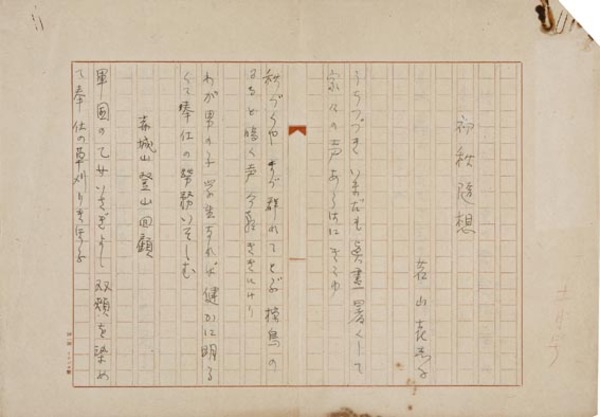 十月号
初秋隨想
若山喜志子
うらつづき いまだも眞晝暑くして
家々の声あらはにきこゆ
秋づくや 群れてとぶ椋鳥の
啼く声今朝ききにけり
わが男の子学生なれば健かに明る
くて奉仕の勞務いそしむ
城山登山回顧
軍国の乙女いさぎよし双頬を染め
て奉仕の草刈りきほふ